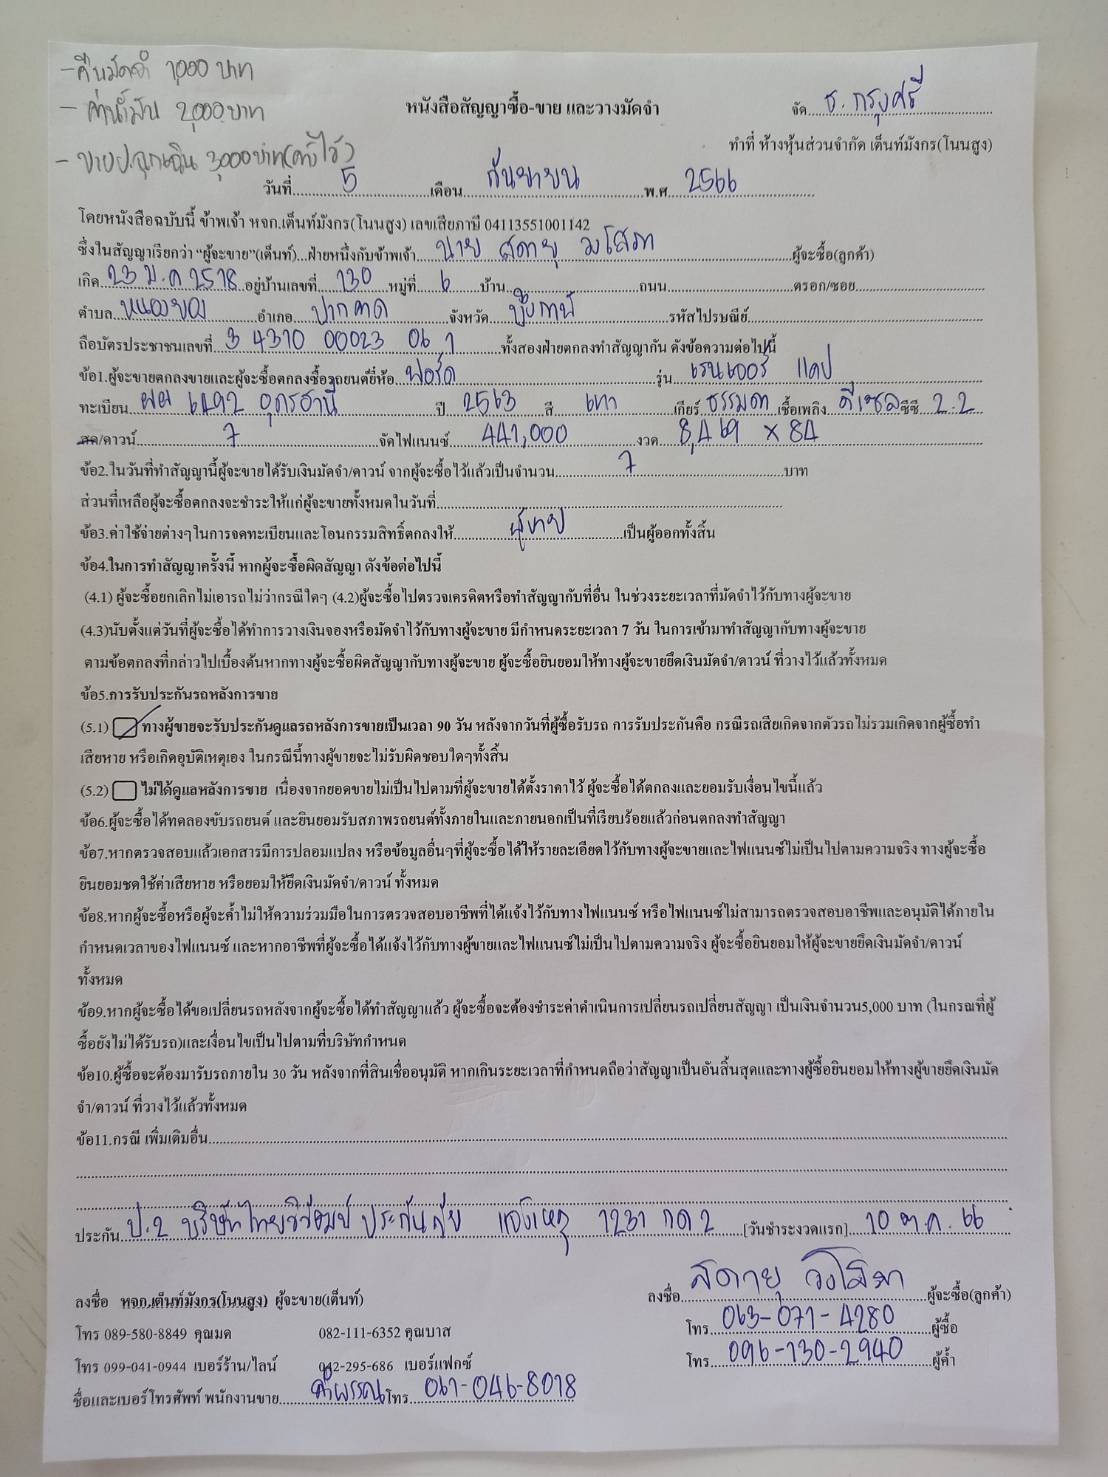 -คืนมัดจำ 1,000 บาท
- ค่าน้ำมัน 2,000 บาท
หนังสือสัญญาซื้อ-ขาย และวางมัดจำ
จัด ธ. กรุงศรี
ทำที่ ห้างหุ้นส่วนจำกัด เต็นท์มังกร(โนนสูง)
- ขายป.ฉุกเฉิน 3,000 บาท
วันที่ 5 เดือน กันยายน พ.ศ. 2566
โดยหนังสือฉบับนี้ ข้าพเจ้า หจก.เต็นท์มังกร(โนนสูง) เลขเสียภาษี 04113551001142
ซึ่งในสัญญาเรียกว่า "ผู้จะขาย"(เต็นท์)...ฝ่ายหนึ่งกับข้าพเจ้า นาย สดายุ ผู้จะซื้อ(ลูกค้า)
เกิด 23 ม.ค 2518 อยู่บ้านเลขที่ 130 หมู่ที่ 6 บ้าน ถนน ตรอก/ซอย
ตำบล หนองยอง อำเภอ ปากคาด จังหวัด บึงกาฬ รหัสไปรษณีย์
ถือบัตรประชาชนเลขที่ 3 4310 00023 06 1 ทั้งสองฝ่ายตกลงทำสัญญากัน ดังข้อความต่อไปนี้
ข้อ1.ผู้จะขายตกลงขายและผู้จะซื้อตกลงซื้อรถยนต์ยี่ห้อ ฟอร์ด รุ่น เรนเจอร์ แคป
ทะเบียน ผผ 6492 อุดรธานี ปี 2563 สี เทา เกียร์ ธรรมดา เชื้อเพลิง ดีเซล ซีซี 2.2
สด/ดาวน์ 7 จัดไฟแนนซ์ 441,000 งวด 8,469 x 84
ข้อ2.ในวันที่ทำสัญญานี้ผู้จะขายได้รับเงินมัดจำ/ดาวน์ จากผู้จะซื้อไว้แล้วเป็นจำนวน 7 บาท
ส่วนที่เหลือผู้จะซื้อตกลงจะชำระให้แก่ผู้จะขายทั้งหมดในวันที่
ข้อ3.ค่าใช้จ่ายต่างๆในการจดทะเบียนและโอนกรรมสิทธิ์ตกลงให้ ผู้ขาย เป็นผู้ออกทั้งสิ้น
ข้อ4.ในการทำสัญญาครั้งนี้ หากผู้จะซื้อผิดสัญญา ดังข้อต่อไปนี้
(4.1) ผู้จะซื้อยกเลิกไม่เอารถไม่ว่ากรณีใดๆ (4.2)ผู้จะซื้อไปตรวจเครดิตหรือทำสัญญากับที่อื่น ในช่วงระยะเวลาที่มัดจำไว้กับทางผู้จะขาย
(4.3)นับตั้งแต่วันที่ผู้จะซื้อได้ทำการวางเงินจองหรือมัดจำไว้กับทางผู้จะขาย มีกำหนดระยะเวลา 7 วัน ในการเข้ามาทำสัญญากับทางผู้จะขาย
ตามข้อตกลงที่กล่าวไปเบื้องต้นหากทางผู้จะซื้อผิดสัญญากับทางผู้จะขาย ผู้จะซื้อยินยอมให้ทางผู้จะขายยึดเงินมัดจำ/ดาวน์ ที่วางไว้แล้วทั้งหมด
ข้อ5.การรับประกันรถหลังการขาย
(5.1) ทางผู้ขายจะรับประกันดูแลรถหลังการขายเป็นเวลา 90 วัน หลังจากวันที่ผู้ซื้อรับรถ การรับประกันคือ กรณีรถเสียเกิดจากตัวรถไม่รวมเกิดจากผู้ซื้อทำ
เสียหาย หรือเกิดอุบัติเหตุเอง ในกรณีนี้ทางผู้ขายจะไม่รับผิดชอบใดๆทั้งสิ้น
(5.2) ไม่ได้ดูแลหลังการขาย เนื่องจากยอดขายไม่เป็นไปตามที่ผู้จะขายได้ตั้งราคาไว้ ผู้จะซื้อได้ตกลงและยอมรับเงื่อนไขนี้แล้ว
ข้อ6.ผู้จะซื้อได้ทดลองขับรถยนต์ และยินยอมรับสภาพรถยนต์ทั้งภายในและภายนอกเป็นที่เรียบร้อยแล้วก่อนตกลงทำสัญญา
ข้อ7.หากตรวจสอบแล้วเอกสารมีการปลอมแปลง หรือข้อมูลอื่นๆที่ผู้จะซื้อได้ให้รายละเอียดไว้กับทางผู้จะขายและไฟแนนซ์ไม่เป็นไปตามความจริง ทางผู้จะซื้อ
ยินยอมชดใช้ค่าเสียหาย หรือยอมให้ยึดเงินมัดจำ/ดาวน์ ทั้งหมด
ข้อ8.หากผู้จะซื้อหรือผู้จะค้ำไม่ให้ความร่วมมือในการตรวจสอบอาชีพที่ได้แจ้งไว้กับทางไฟแนนซ์ หรือไฟแนนซ์ไม่สามารถตรวจสอบอาชีพและอนุมัติได้ภายใน
กำหนดเวลาของไฟแนนซ์ และหากอาชีพที่ผู้จะซื้อได้แจ้งไว้กับทางผู้ขายและไฟแนนซ์ไม่เป็นไปตามความจริง ผู้จะซื้อยินยอมให้ผู้จะขายยึดเงินมัดจำ/ดาวน์
ทั้งหมด
ข้อ9.หากผู้จะซื้อได้ขอเปลี่ยนรถหลังจากผู้จะซื้อได้ทำสัญญาแล้ว ผู้จะซื้อจะต้องชำระค่าดำเนินการเปลี่ยนรถเปลี่ยนสัญญา เป็นเงินจำนวน5,000 บาท (ในกรณที่ผู้
ซื้อยังไม่ได้รับรถ)และเงื่อนไขเป็นไปตามที่บริษัทกำหนด
ข้อ10.ผู้ซื้อจะต้องมารับรถภายใน 30 วัน หลังจากที่สินเชื่ออนุมัติ หากเกินระยะเวลาที่กำหนดถือว่าสัญญาเป็นอันสิ้นสุดและทางผู้ซื้อยินยอมให้ทางผู้ขายยึดเงินมัด
จำ/ดาวน์ ที่วางไว้แล้วทั้งหมด
ข้อ11.กรณี เพิ่มเติมอื่น
ประกัน ป.2 บริษัทไทยวิวัฒน์ ประกันภัย แจ้งเหตุ 1231 กด 2 [วันชำระงวดแรก] 10 ต.ค. 66
ลงชื่อ หจก.เต็นท์มังกร(โนนสูง) ผู้จะขาย(เต็นท์)
ลงชื่อ สดายุ ผู้จะซื้อ(ลูกค้า)
โทร 089-580-8849 คุณมด 082-111-6352 คุณบาส
โทร. 063-071-4280 ผู้ซื้อ
โทร 099-041-0944 เบอร์ร้าน/ไลน์ 042-295-686 เบอร์แฟกซ์
โทร. 096-130-2940 ผู้ค้ำ
ชื่อและเบอร์โทรศัพท์ พนักงานขาย คำพรรณ โทร. 061-046-8018